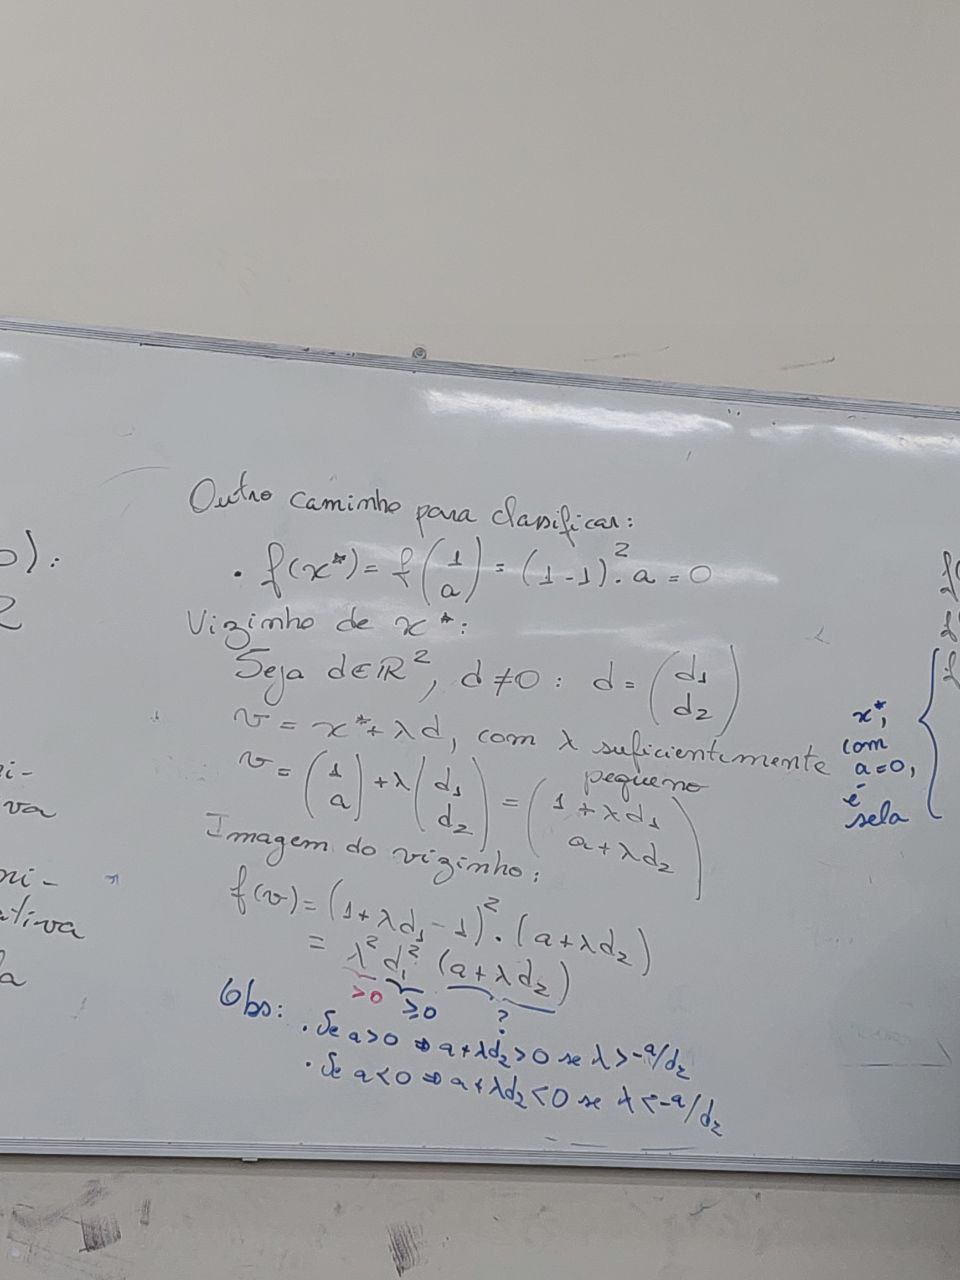 Outro caminho para classificar:
• f(x*) = f(1 a) = (1-1)². a = 0
Vizinho de x*:
Seja d∈ℝ², d≠0: d = (d₁ d₂)
v = x* + λd, com λ suficientemente pequeno
v = (1 a) + λ(d₁ d₂) = (1+λd₁ a+λd₂)
Imagem do vizinho:
f(v) = (1+λd₁-1)².(a+λd₂)
= λ² d₁² (a+λd₂)
>0 ≥0 ?
Obs: • Se a>0 ⇒ a+λd₂>0 se λ>-a/d₂
• Se a<0 ⇒ a+λd₂<0 se λ<-a/d₂
x*,
com
a=0,
é
sela